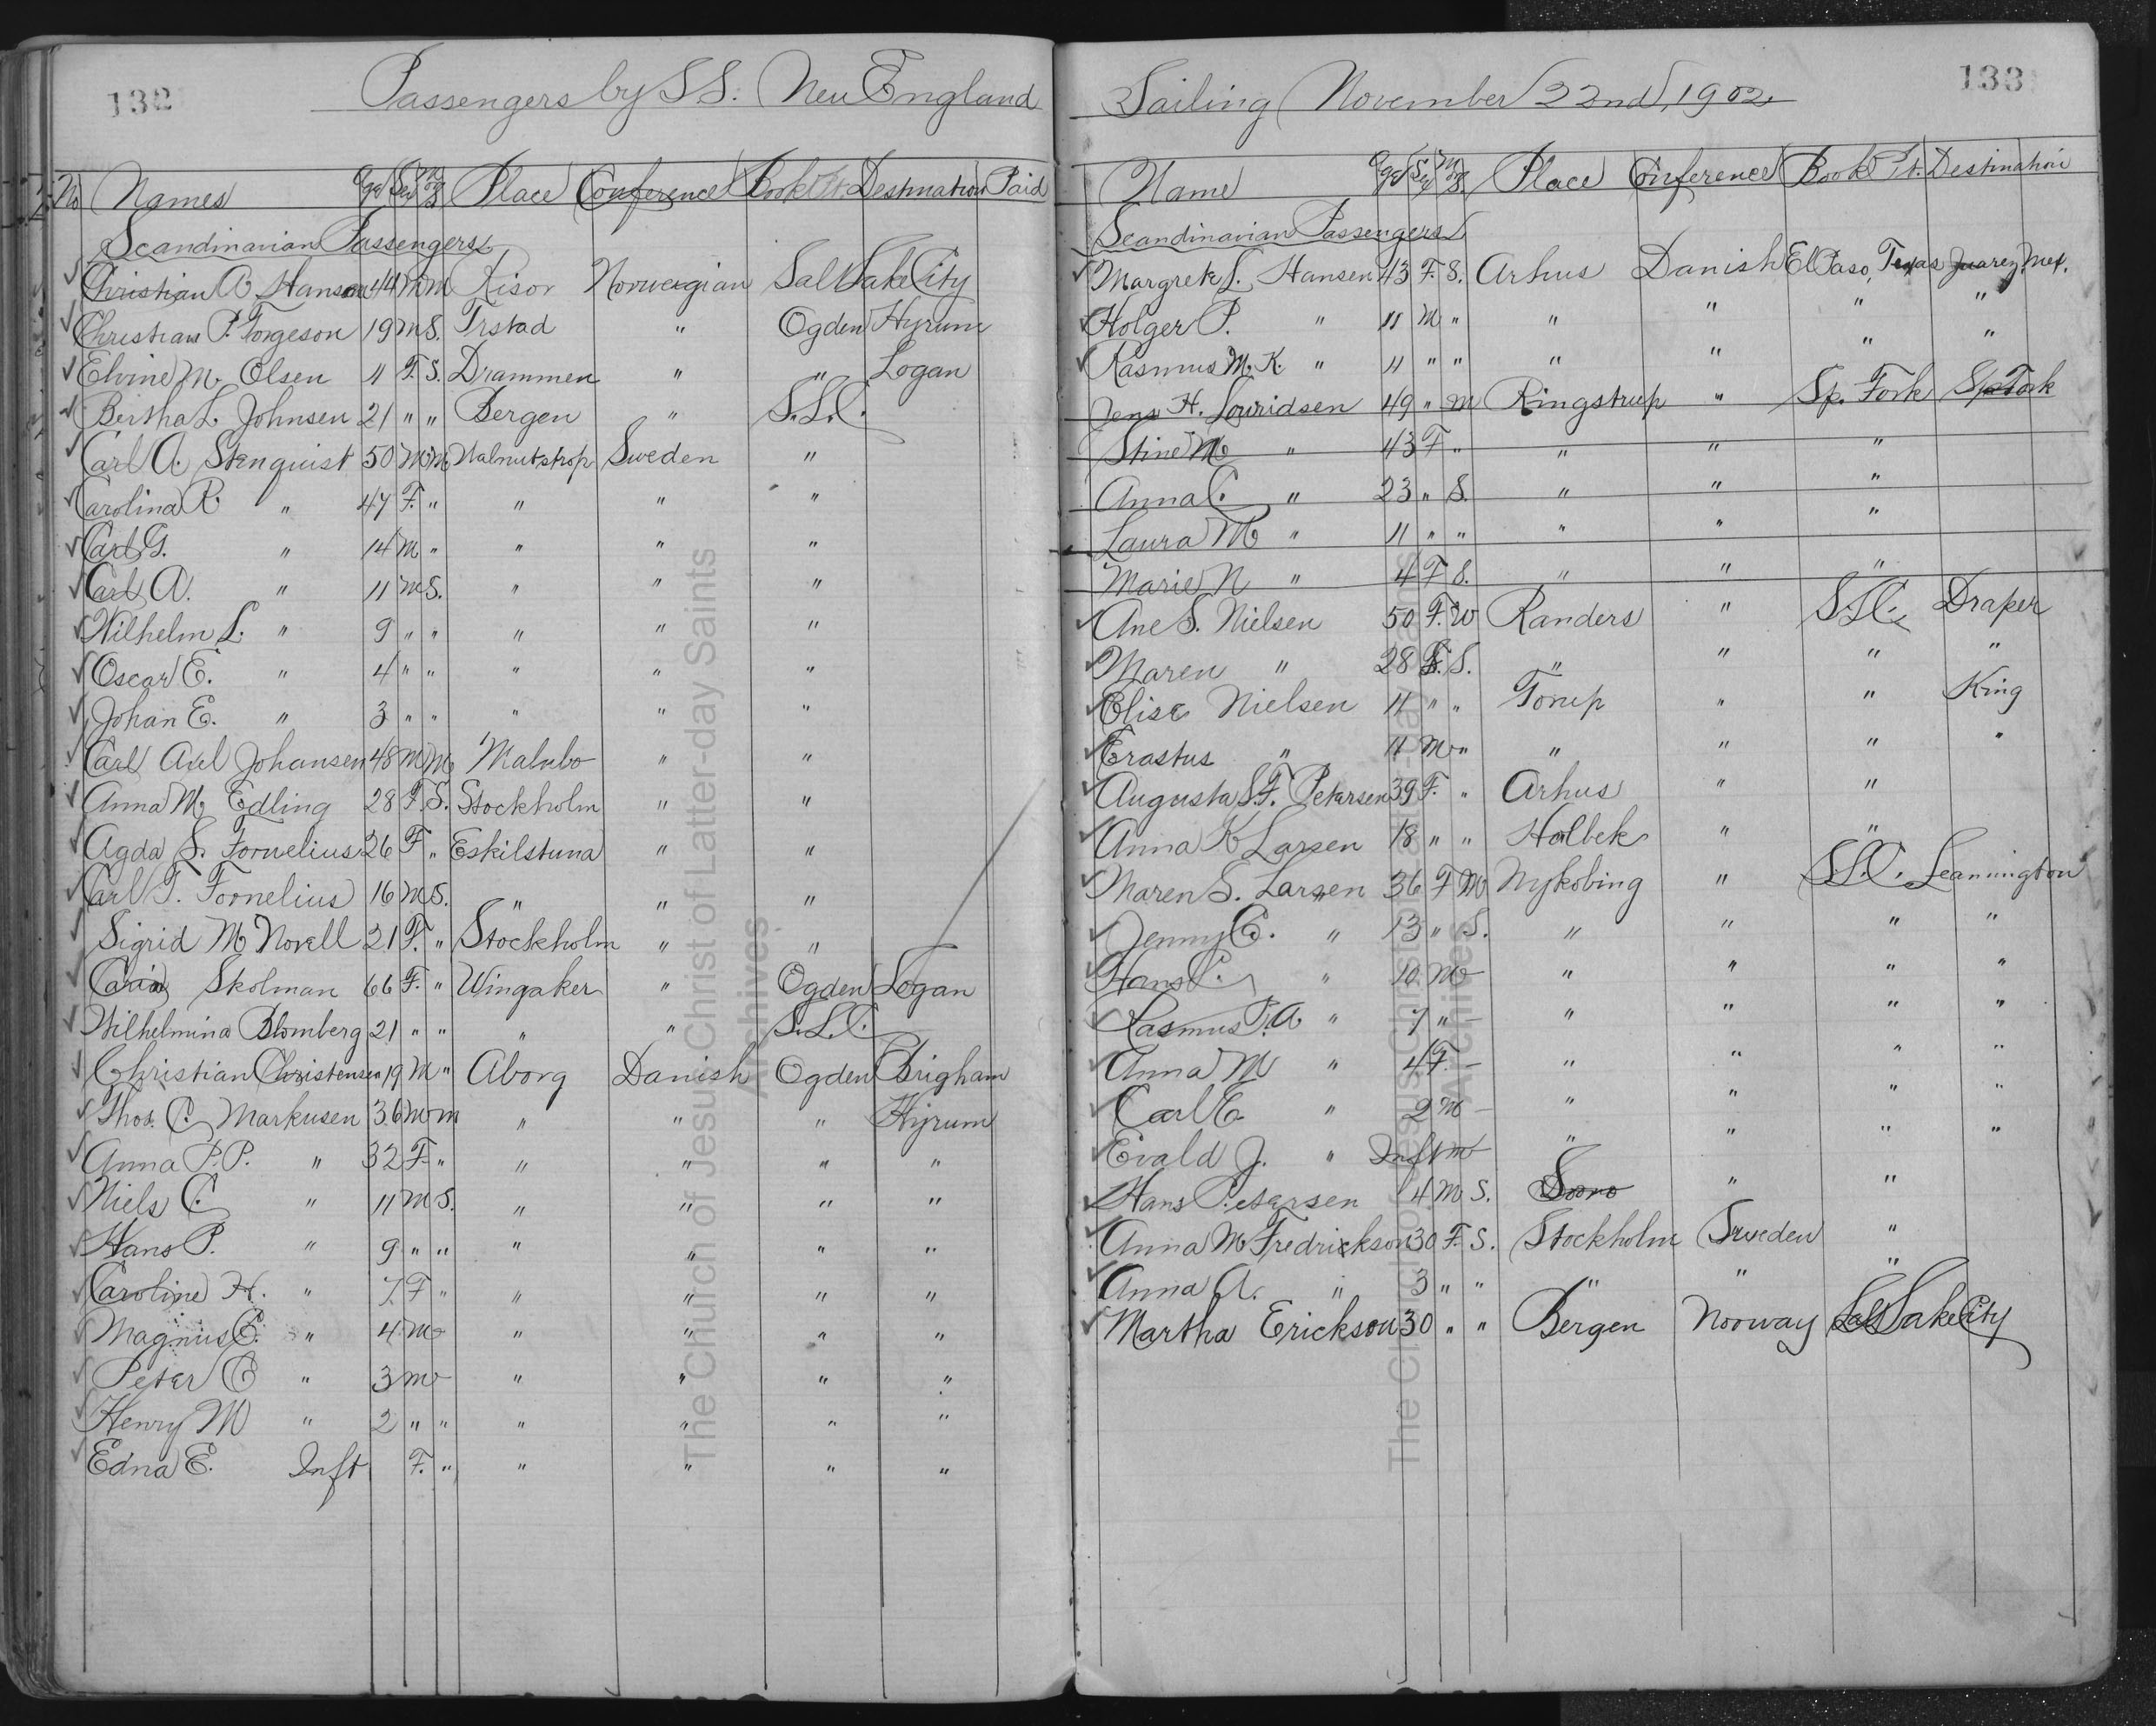 132
Passengers by S.S. New England
No Names Age Sex M or S Place Conference Book Pt. Destination Paid
Scandinavian Passengers
Christian A Hanson 44 M M Risor Norweigian Salt Lake City
Christian P. Torgeson 19 M S. Trstad " Ogden Hyrum
Elvine M. Olsen 11 F. S. Drammen " " Logan
Bertha L. Johnsen 21 " " Bergen " S.L.C.
Carl A. Stenquist 50 M M Walnutstrop Sweden "
Carolina R " 47 F. " " " "
Carl G. " 14 M " " " "
Carl A. " 11 M S. " " "
Wilhelm L. " 9 " " " " "
Oscar E. " 4 " " " " "
Johan E. " 3 " " " " "
Carl Axel Johansen 48 M M Malmbo " "
Anna M Edling 28 F. S. Stockholm " "
Agda S. Fornelius 26 F " Eskilstuna " "
Carl T. Fornelius 16 M S. " " "
Sigrid M Norell 21 F. " Stockholm " "
Carin Skolman 66 F. " Wingaker " Ogden Logan
Wilhelmina Blomberg 21 " " " " S.L.C.
Christian Christensen 19 M " Aborg Danish Ogden Brigham
Thos. C. Markusen 36 M M " " " Hyrum
Anna P.P. " 32 F. " " " " "
Niels C. " 11 M S. " " " "
Hans P. " 9 " " " " " "
Caroline H. " 7 F " " " " "
Magnus C. " 4 M " " " "
Peter C " 3 M " " " "
Henry M " 2 " " " " " "
Edna E. Inft F. " " " " "
133
Sailing November 22nd, 1902
Name Age Sex M or S. Place Conference Book Pt. Destination
Scandinavian Passengers
Margrete L. Hansen 43 F. S. Arhus Danish El Paso, Texas Juarez, Mex.
Holger P. " 11 M " " " " "
Rasmus M. K. " 11 " " " " " "
Jens H. Louridsen 49 " M Ringstrup " Sp. Fork Sp Fork
Stine M " 43 F " " " "
Anna C. " 23 " S. " " "
Laura M " 11 " " " " "
Marie N " 4 F S. " " "
Ane S. Nielsen 50 F. W Randers " S.L.C. Draper
Maren " 28 F. S. " " " "
Elise Nielsen 11 " " Torup " " King
Erastus " 11 M " " " " "
Augusta S. F. Petersen 39 F. " Arhus " "
Anna K Larsen 18 " " Holbek " "
Maren S. Larsen 36 F M Nykobing " S.L.C. Leamington
Jenny C. " 13 " S. " " " "
Hans C. " 10 M - " " " "
Rasmus P. A " 7 " - " " " "
Anna M " 4 F. - " " " "
Carl E. " 2 M - " " " "
Evald J. " Inft M " " " "
Hans Petersen 4 M S. Soro " "
Anna M Fredrickson 30 F. S. Stockholm Sweden "
Anna A. " 3 " " " " "
Martha Erickson 30 " " Bergen Norway Salt Lake City
The Church of Jesus Christ of Latter-day Saints
Archives
The Church of Jesus Christ of Latter-day Saints
Archives